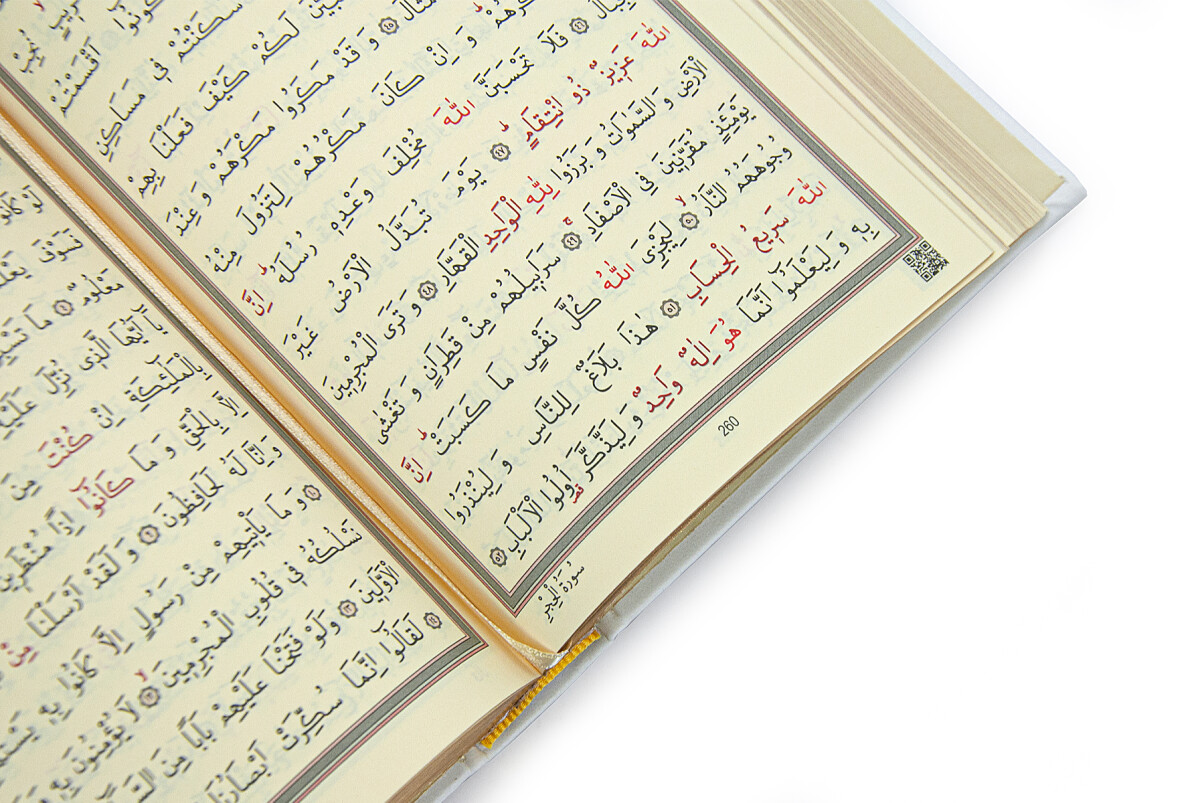 قَرِيبٍ نُجِبْ
اَقْسَمْتُمْ
سَكَنْتُمْ فِي مَسَاكِنِ
لَكُمْ كَيْفَ فَعَلْنَا بِهِمْ
٤٥ وَ قَدْ مَكَرُوا مَكْرَهُمْ وَ عِنْدَ
وَ اِنْ كَانَ مَكْرُهُمْ لِتَزُولَ مِنْهُ
٤٦ فَلَا تَحْسَبَنَّ اللّٰهَ مُخْلِفَ وَعْدِهٖ رُسُلَهُ اِنَّ
اللّٰهَ عَزِيزٌ ذُو انْتِقَامٍ ٤٧ يَوْمَ تُبَدَّلُ الْاَرْضُ غَيْرَ
الْاَرْضِ وَ السَّمٰوَاتُ وَ بَرَزُوا لِلّٰهِ الْوَاحِدِ الْقَهَّارِ ٤٨ وَ تَرَى الْمُجْرِمِينَ
يَوْمَئِذٍ مُقَرَّنِينَ فِي الْاَصْفَادِ ٤٩ سَرَابِيلُهُمْ مِنْ قَطِرَانٍ وَ تَغْشٰى
وُجُوهَهُمُ النَّارُ ٥٠ لِيَجْزِيَ اللّٰهُ كُلَّ نَفْسٍ مَا كَسَبَتْ اِنَّ
اللّٰهَ سَرِيعُ الْحِسَابِ ٥١ هٰذَا بَلَاغٌ لِلنَّاسِ وَ لِيُنْذَرُوا
بِهٖ وَ لِيَعْلَمُٓوا اَنَّمَا هُوَ اِلٰهٌ وَاحِدٌ وَ لِيَذَّكَّرَ اُولُوا الْاَلْبَابِ ٥٢
260
سُورَةُ الْحِجْرِ
لَوْ كَانُوا
فَسَوْفَ
مَعْلُومٌ ٤ مَا
يَٓا اَيُّهَا الَّذِي نُزِّلَ
بِالْمَلٰٓئِكَةِ اِنْ كُنْتَ مِنَ
اِلَّا بِالْحَقِّ وَ مَا كَانُٓوا اِذًا مُنْظَرِينَ
وَ اِنَّا لَهُ لَحَافِظُونَ ٩ وَ لَقَدْ اَرْسَلْنَا مِنْ
١٠ وَ مَا يَاْتِيهِمْ مِنْ رَسُولٍ اِلَّا كَانُوا بِهٖ
نَسْلُكُهُ فِي قُلُوبِ الْمُجْرِمِينَ ١٢ لَا يُؤْمِنُونَ بِهٖ
الْاَوَّلِينَ ١٣ وَلَوْ فَتَحْنَا عَلَيْهِمْ بَابًا مِنَ
١٤ لَقَالُٓوا اِنَّمَا سُكِّرَتْ اَبْصَارُنَا